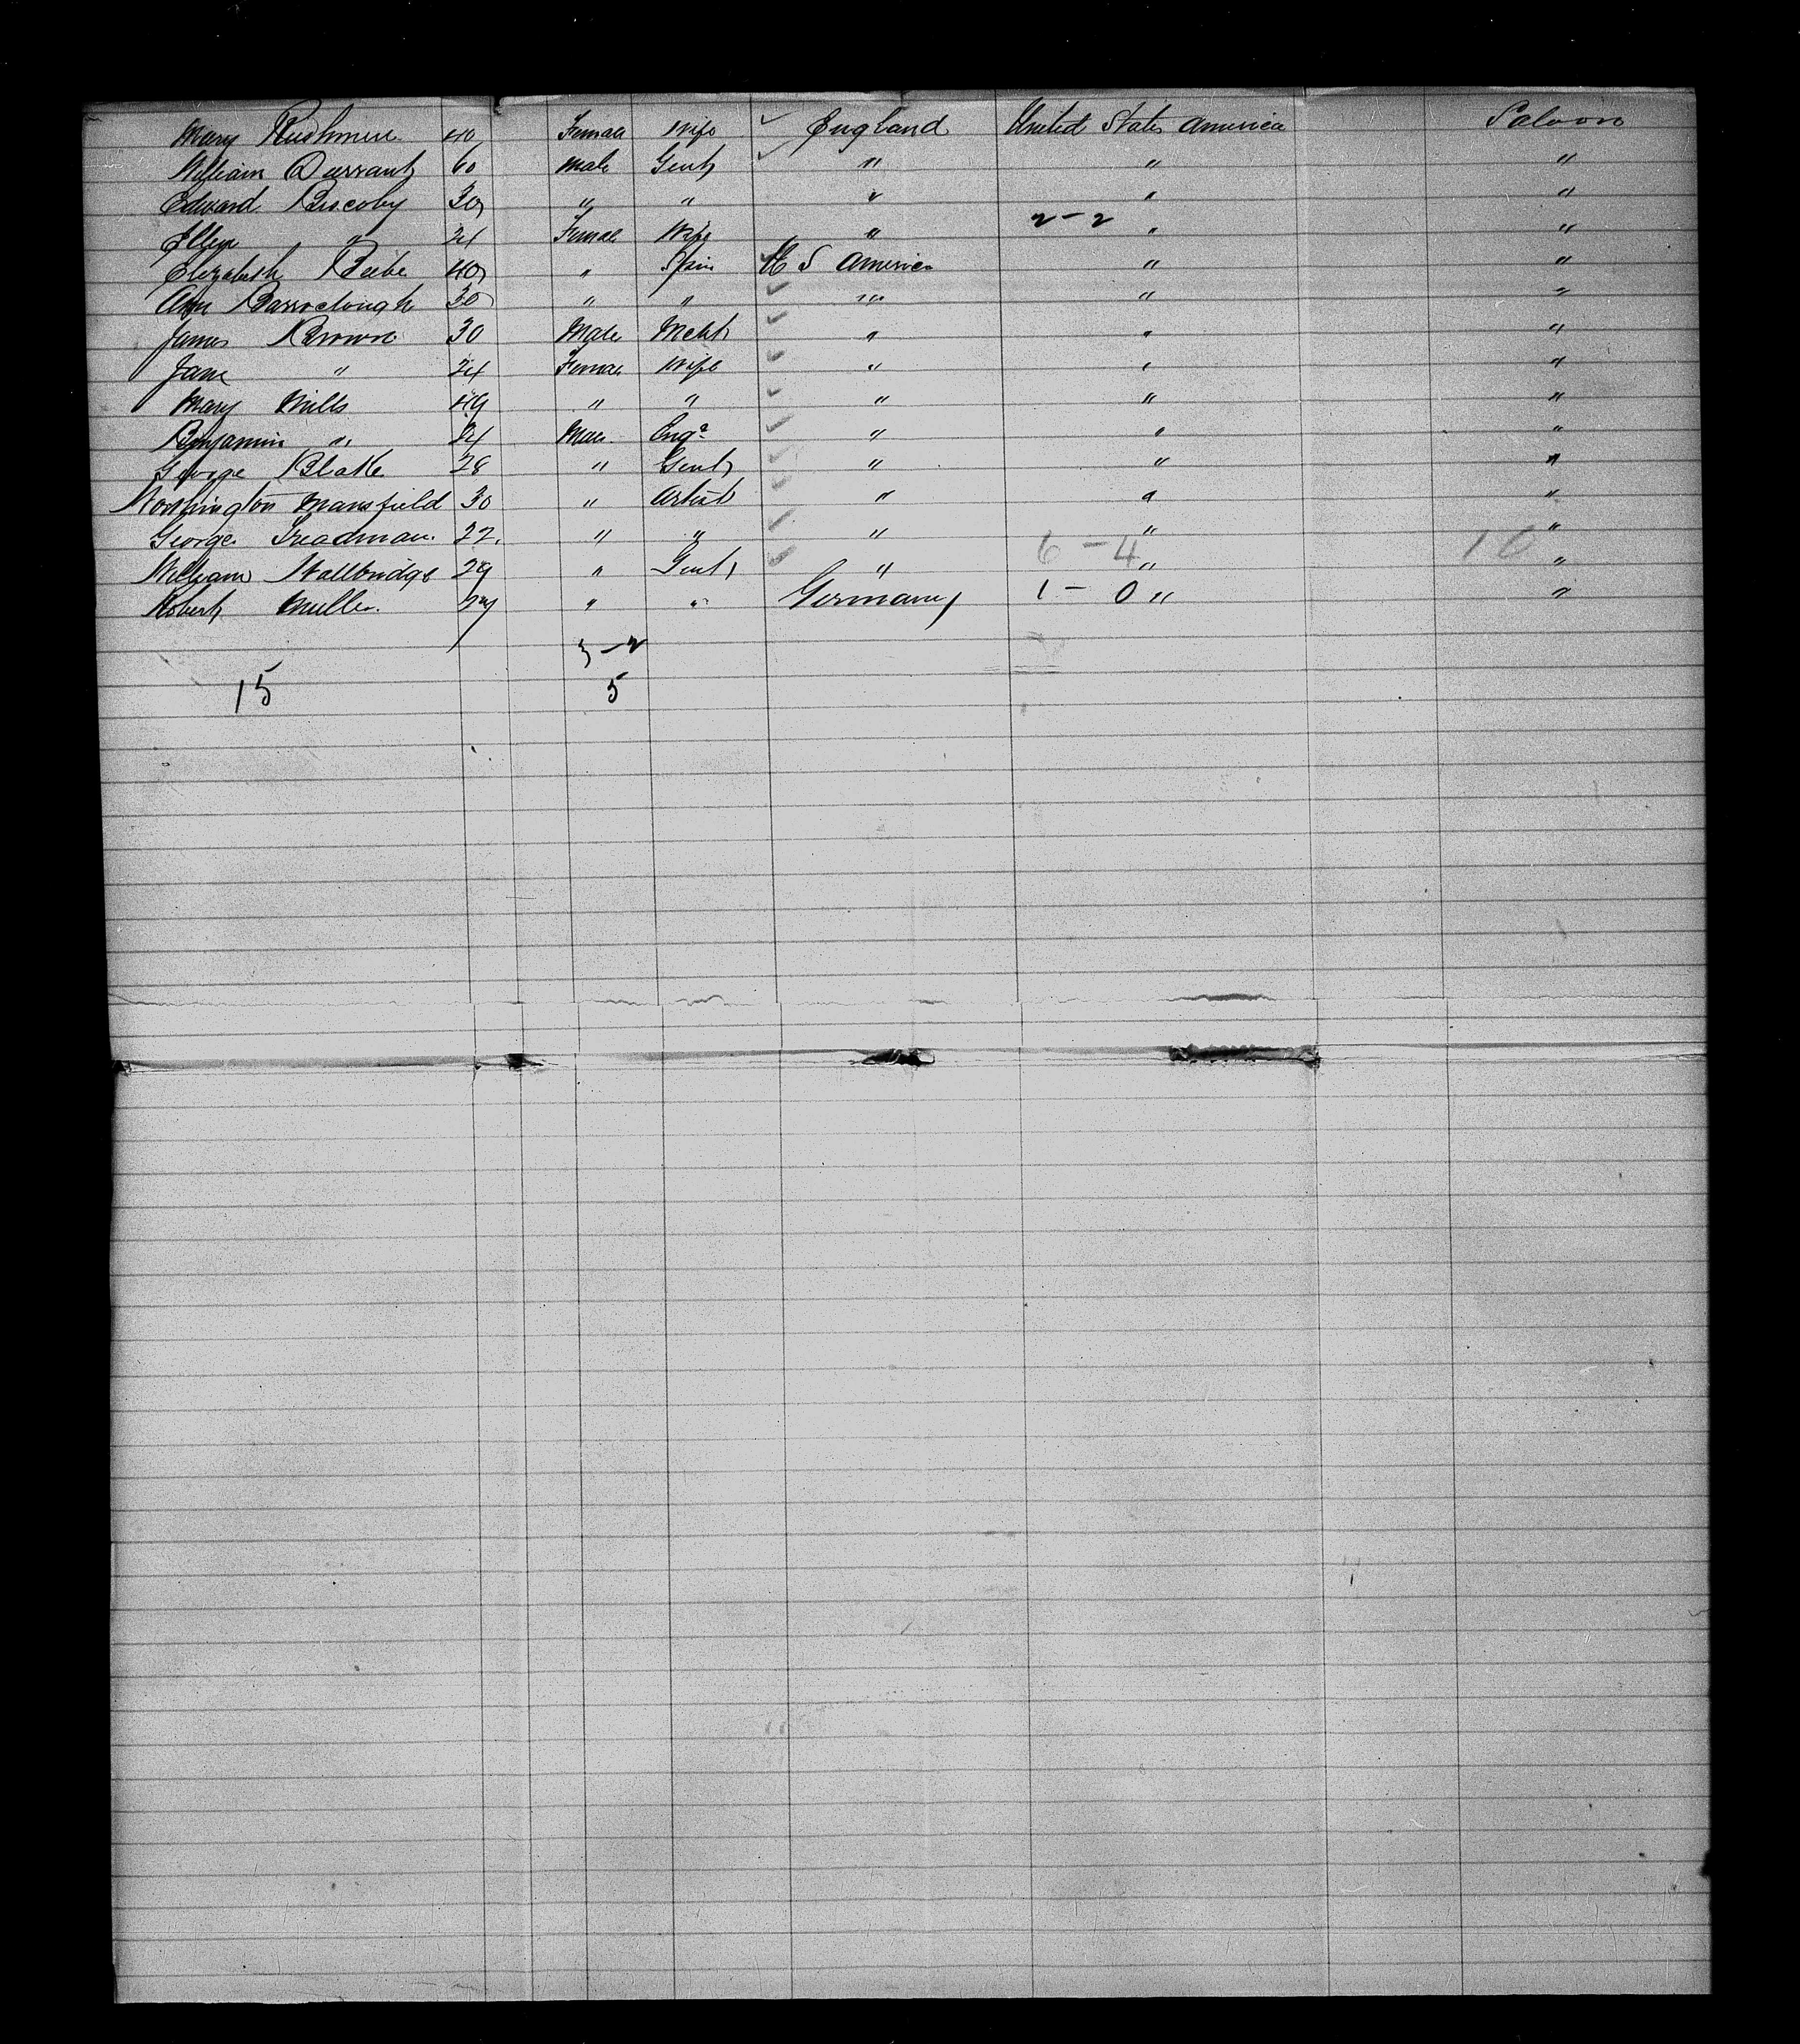 Mary Rushmere 40 Female Wife England United States America Saloon
William Durrant 60 Male Gent " " "
Edward Biscoby 30 " " " " "
2-2
Ellen " 24 Female Wife " " "
Elizabeth Beebe 40 " Spin U S America " "
Ann Barroclough 30 " " " " "
James Brown 30 Male Mcht " " "
Jane " 24 Female Wife " " "
Mary Mills 49 " " " " "
Benjamin " 24 Male Engr " " "
George Blake 28 " Gent " " "
Worthington Mansfield 30 " Artist " " "
George Treadman 22 " " " " "
6-4 10
William Wallbridge 29 " Gent " " "
Robert Muller 27 " " Germany 1-0 " "
3-2
15 5